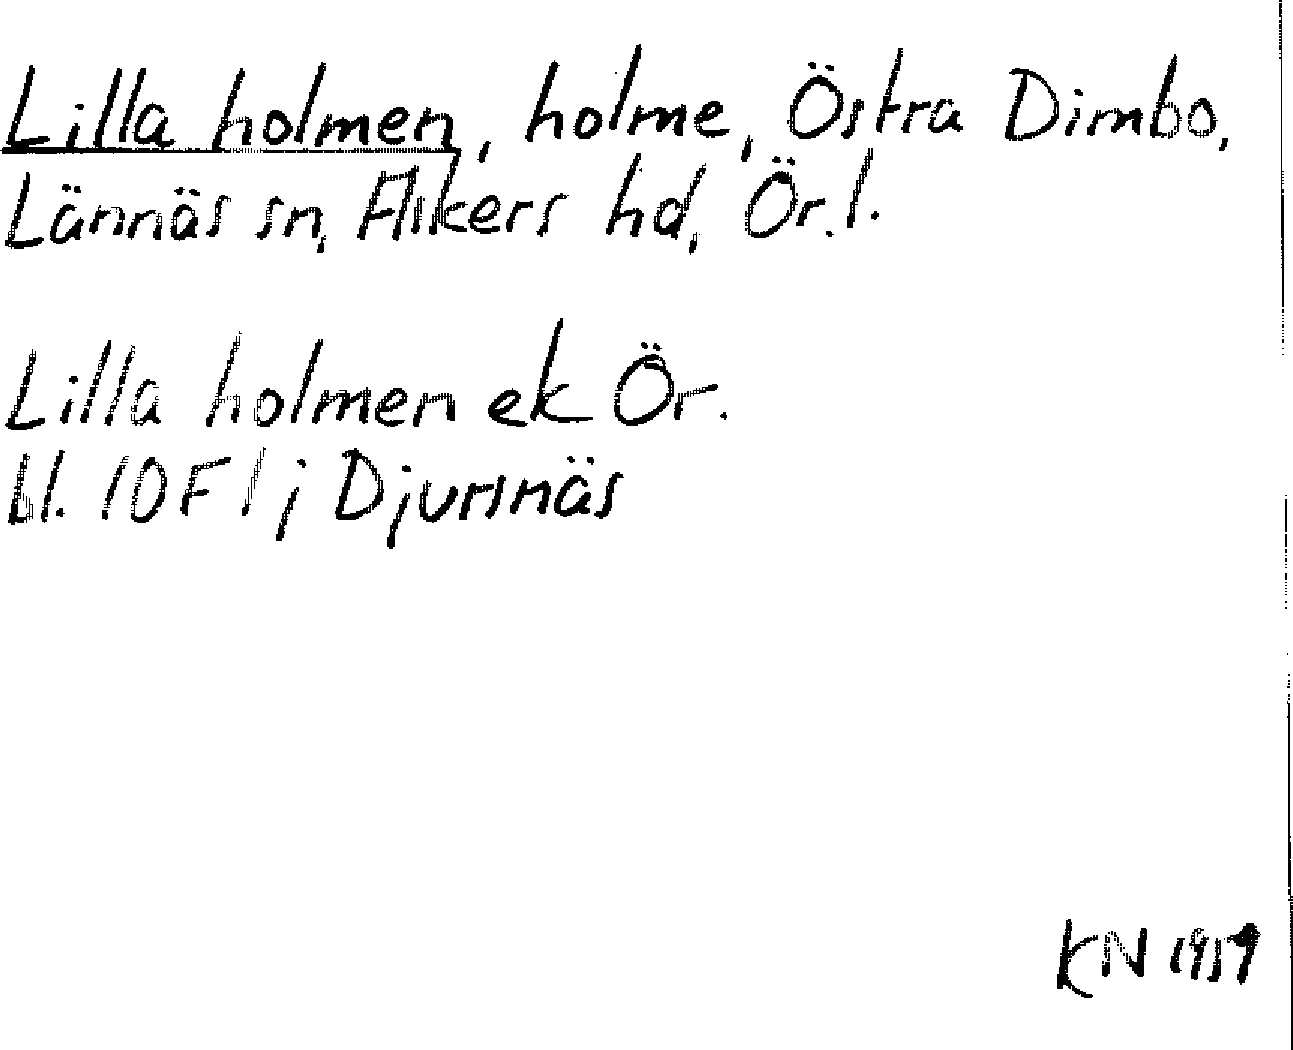 Lilla holmen, holme, Östra Dimbo,
Lännäs sn, Askers hd, Ör. l.
Lilla holmen ek Ör.
bl. 10 F 1 j Djursnäs
KN